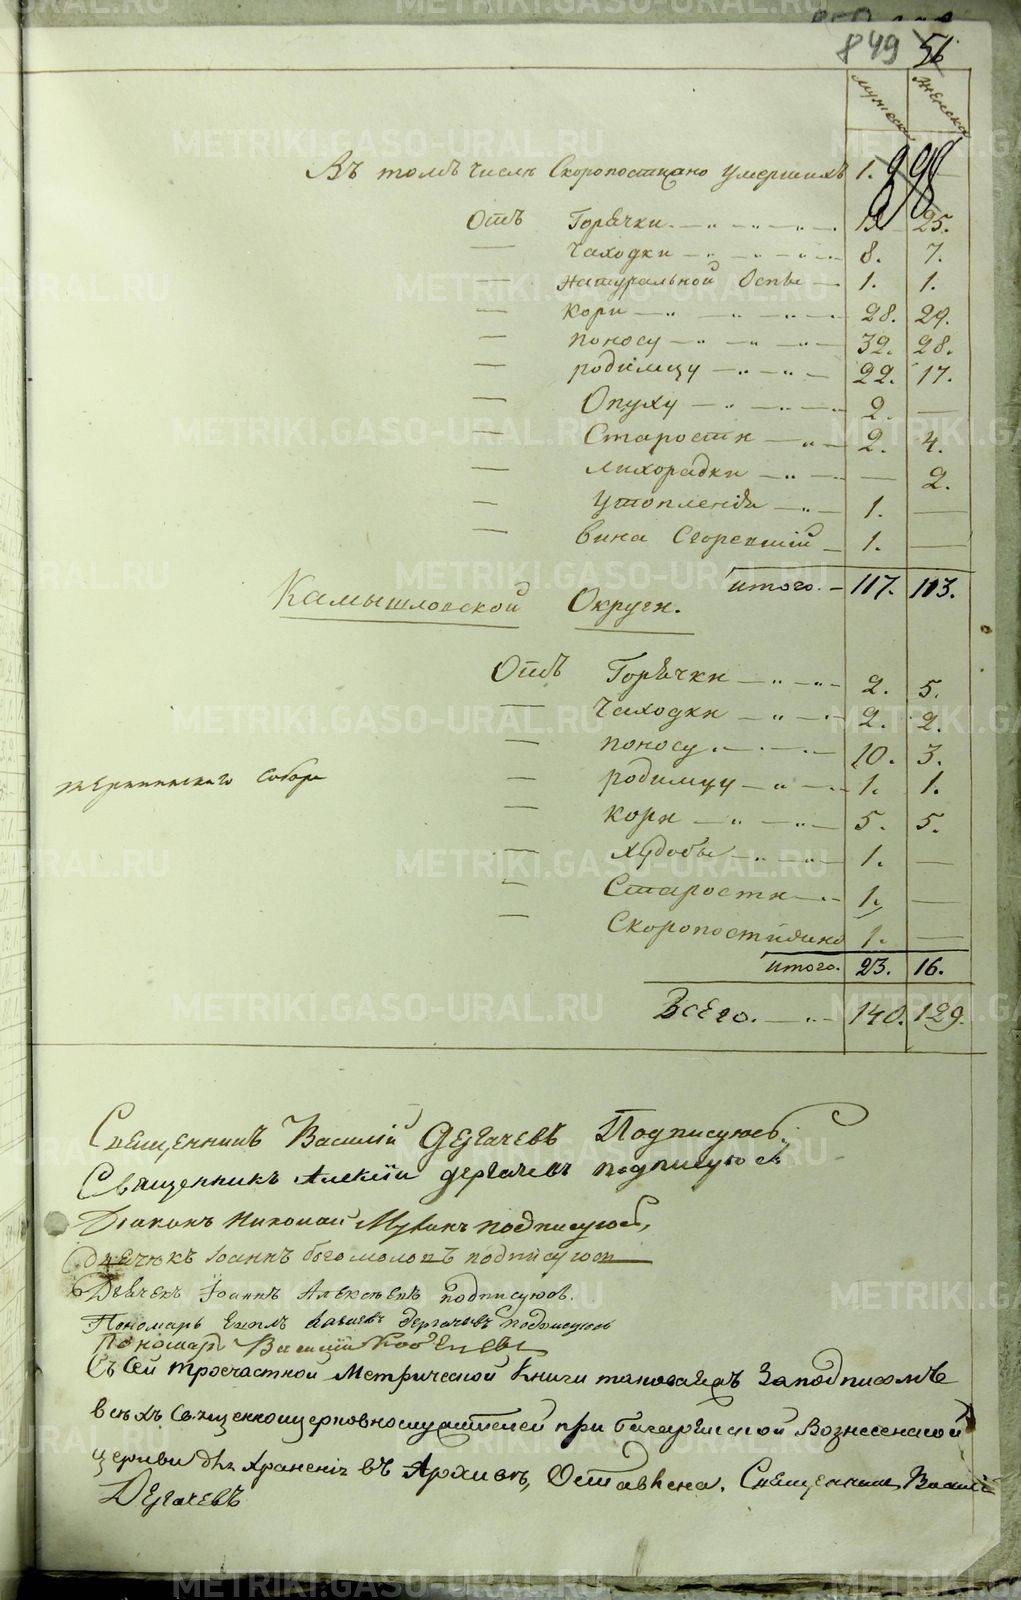 849 56
мужеска женска
898
Въ томъ числѣ Скоропостижно умершихъ 1. —
Отъ Горячки 25.
— Чаходки 8. 7.
— натуральной Оспы 1. 1.
— кори 28. 29.
— поносу 32. 28.
— родимцу 22. 17.
— Опуху 2. —
— Старости 2. 4.
— лихорадки — 2.
— утопленія 1. —
— вина Сгоревшій 1. —
итого. 117. 113.
Камышловской Округи.
Отъ Горячки 2. 5.
— Чаходки 2. 2.
— поносу 10. 3.
— родимцу 1. 1.
собора
— кори 5. 5.
— худобы 1. —
— Старости 1. —
— Скоропостижно 1. —
итого. 23. 16.
Всего. 140. 129.
Священникъ Василій Дергачевъ Подписуюсь.
Священникъ Алексій дергачевъ подписуюсь
Діаконъ Николай подписуюсь,
Дьячокъ Іоаннъ богомоловъ подписуюсь
Дьячекъ Іоаннъ Алексѣевъ подписуюсь.
Пономарь дергачевъ подписуюсь
Пономарь Василій
Съ Сей троечастной Метрической Книги таковаяжъ За подписомъ
всѣхъ Священноцерковнослужителей при Вознесенской
церкви для хранения въ Архивѣ, Оставлена. Священникъ Василій
Дергачевъ
METRIKI.GASO-URAL.RU